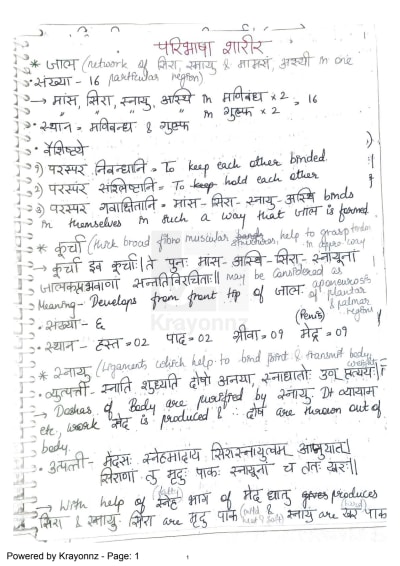 परिभाषा शारीर
* जाल (network of सिरा, स्नायु & मांस, अस्थी in one
• संख्या - 16 particular region)
→ मांस, सिरा, स्नायु, अस्थि in मणिबंध × 2 = 16
" " " " in गुल्फ × 2
• स्थान = मणिबन्ध & गुल्फ
• वैशिष्ट्ये
1) परस्पर निबन्धानि = To keep each other binded
2) परस्पर संश्लिष्टानि = To hold each other
3) परस्पर गवाक्षितानि = मांस-सिरा-स्नायु-अस्थि binds
themselves in such a way that जाल is formed
* कूर्चा (thick broad fibro muscular help to grasp
→ कूर्चा इव कूर्चाः। ते पुनः मांस-अस्थि-सिरा-स्नायूनां
may be considered as
Meaning - Develops from front tip of जाल. aponeurosis of plantar & palmar region)
• संख्या - 6
(Penis)
• स्थान - हस्त = 02 पाद = 02 ग्रीवा = 01 मेढ्र = 01
* स्नायु (Ligaments which help to bind joint & transmit body weight)
• व्युत्पत्ती - स्नाति शुध्यति दोषो अनया, स्नाधातोः उण् प्रत्ययः।
→ Doshas of Body are purified by स्नायु. Dt व्यायाम
etc, work मेद is produced & दोष are thrown out of
body.
• उत्पत्ती - मेदसः स्नेहमादाय सिरास्नायुत्वम् आप्नुयात्।
सिराणां तु मृदुः पाकः स्नायूनां च ततः खरः॥
→ With help of स्नेह (fatty) भाग of मेद धातु produces
सिरा & स्नायु. सिरा are मृदु पाक (mild & soft) & स्नायु are खर पाक (hard)
Krayonnz
Powered by Krayonnz - Page: 1
1